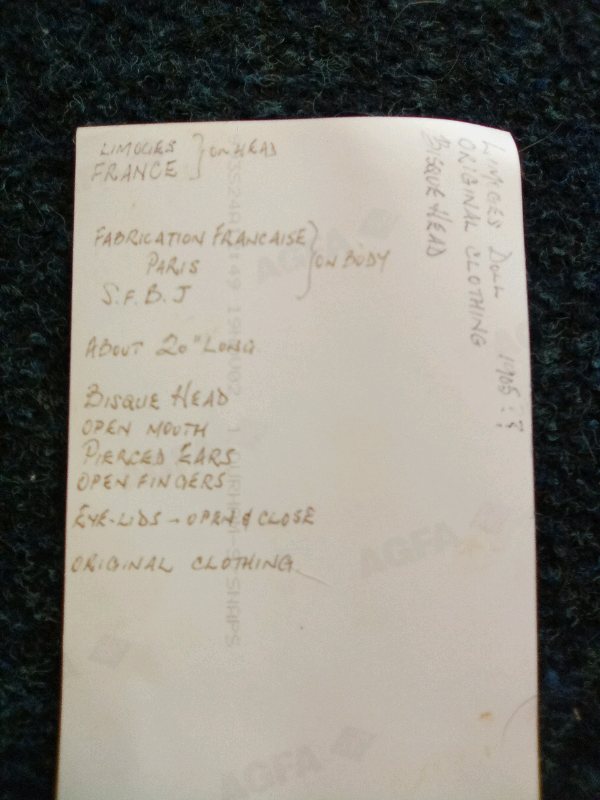 LIMOGES } ON HEAD
FRANCE
FABRICATION FRANCAISE
PARIS } ON BODY
S.F.B.J
ABOUT 20" LONG
BISQUE HEAD
OPEN MOUTH
PIERCED EARS
OPEN FINGERS
EYE-LIDS - OPEN & CLOSE
ORIGINAL CLOTHING
LIMOGES DOLL 1905 : ?
ORIGINAL CLOTHING
BISQUE HEAD
AGFA
AGFA
AGFA